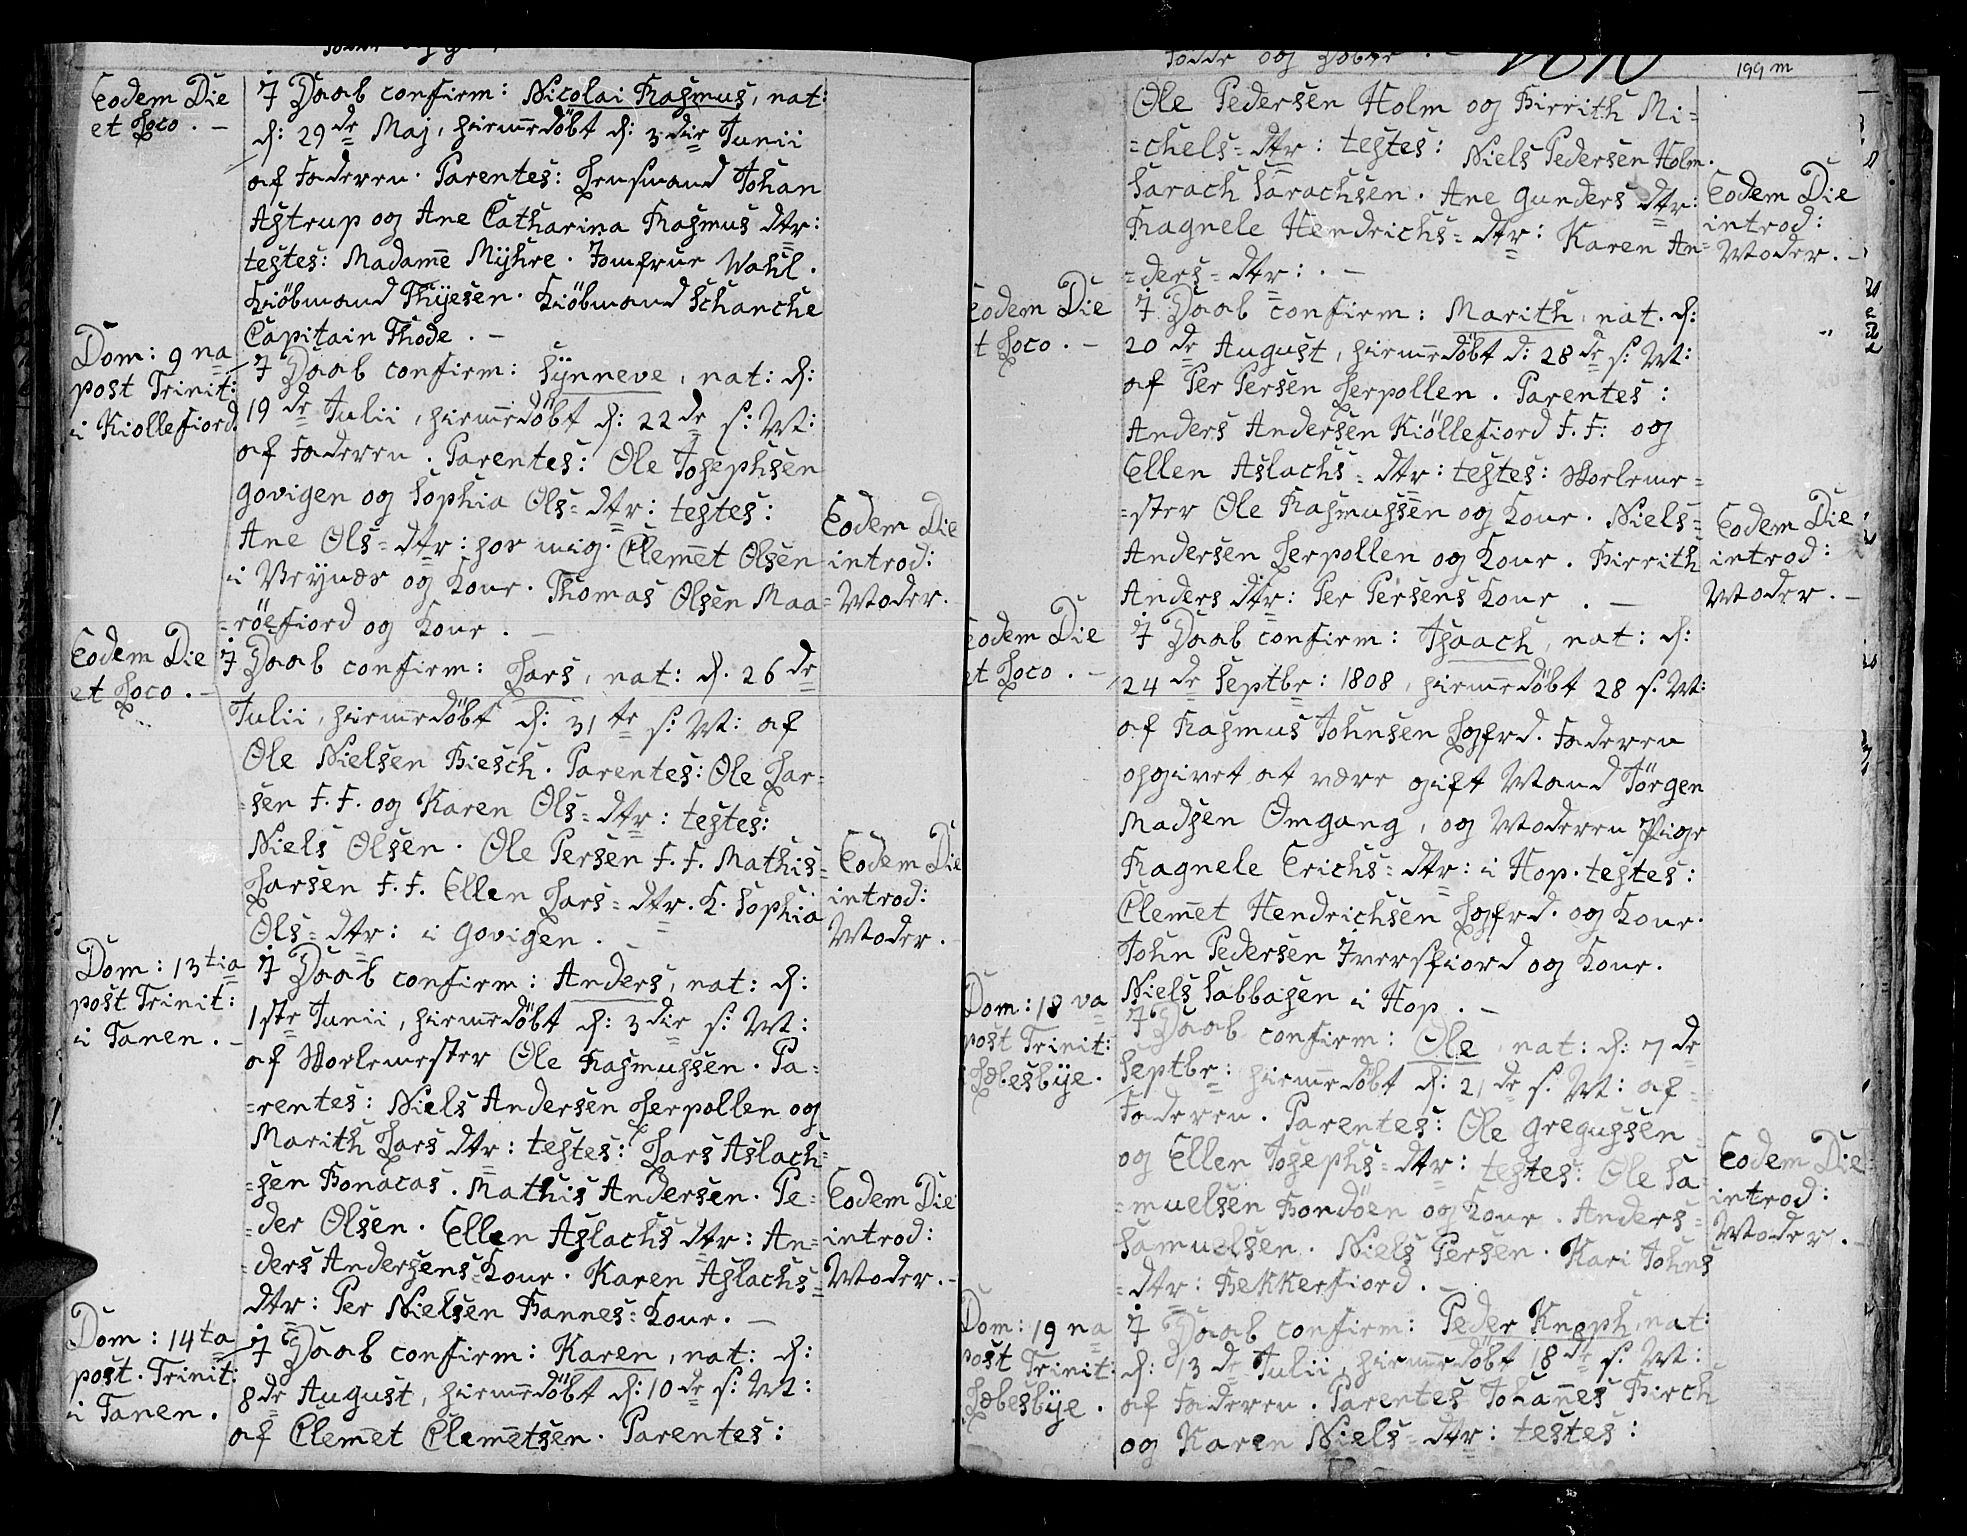 Eodem Die
et Loco . –
I Daab confirm: Nicolai Rasmus, nat:
d: 29de Maj, hiemedöbt d: 3die Junii
af Faderen. Parentes: Lensmand Johan
Astrup og Ane Catharina Rasmus dtr:
testes: Madame Myhre. Jomfrue Wahl.
Kiöbmand Thijesen. Kiöbmand Schanche
Capitain Thode . –
Dom: 9na
post Trinit:
i Kiollefiord.
I Daab confirm: Synneve, nat: d:
19de Julii, hiemedöbt d: 22de s: M:
af Faderen. Parentes: Ole Josephsen
Govigen og Sophia Ols= dtr: testes:
Ane Ols= dtr: hos mig. Clemet Olsen
i Vrynæs og Kone. Thomas Olsen Maa=
=röefiord og Kone . –
Eodem Die
introd:
Moder. –
Eodem Die
et Loco . –
I Daab confirm: Lars, nat: d. 26de
Julii, hiemedöbt d: 31te s: M: af
Ole Nielsen Biesch. Parentes: Ole Lar=
=sen F. F. og Karen Ols= dtr: testes:
Niels Olsen. Ole Persen F. F. Mathis=
Larsen F. F. Ellen Lars= dtr. K. Sophia
Ols= dtr: i Govigen . –
Eodem Die
introd:
Moder. –
Dom: 13tia
post Trinit:
i Tanen . –
I Daab confirm: Anders, nat: d:
1ste Junii, hiemedöbt d: 3die s: M:
af Skolemester Ole Rasmussen. Pa=
=rentes: Niels Andersen Lerpollen og
Marith Lars dtr: testes: Lars Aslach=
=sen Bonacas. Mathis Andersen. Pe=
=der Olsen. Ellen Aslachs dtr: An=
=ders Andersens= Kone. Karen Aslachs=
dtr: Per Nielsen Bannes= Kone. –
Eodem Die
introd:
Moder. –
Dom: 14ta
post. Trinit:
i Tanen .
I Daab confirm: Karen, nat: d:
8de August, hiemedöbt d: 10de s: M:
af Clemet Clemetsen. Parentes:
Födde og Döbte . – 1810
199 m
Ole Pedersen Holm og Birrith Mi=
=chels= dtr: testes: Niels Pedersen Holm.
Sarach Sarachsen. Ane Gunders dtr:
Ragnele Hendrichs= dtr: Karen An=
=ders= dtr: . –
Eodem Die
introd:
Moder. –
Eodem Die
t Loco . –
I Daab confirm: Marith, nat. d:
20de August, hiemedöbt d: 28de s: M:
af Per Persen Lerpollen. Parentes:
Anders Andersen Kiöllefiord F. F: og
Ellen Aslachs= dtr: testes: Skoleme=
=ster Ole Rasmussen og Kone. Niels=
Andersen Lerpollen og Kone. Birrith
Anders dtr: Per Persens Kone . –
Eodem Die
introd:
Moder. –
Eodem Die
et Loco . –
I Daab confirm: Isaach, nat: d:
24de Septbr: 1808, hiemedöbt 28 s: M:
af Rasmus Johnsen Lgfrd. Faderen
opgivet at være gift Mand Jörgen
Madsen Omgang, og Moderen Pige
Ragnele Erichs= dtr: i Hop. testes:
Clemet Hendrichsen Lgfrd. og Kone.
John Pedersen Iversfiord og Kone.
Niels Sabbasen i Hop. –
Dom: 18va
post Trinit:
Lebesbÿe.
I Daab confirm: Ole, nat: d: 7de
Septbr: hiemedöbt d: 21de s: M: af=
Faderen. Parentes: Ole Gregussen=
og Ellen Josephs= dtr: testes: Ole Sa=
=muelsen Bondöen og Kone. Anders=
Samuelsen. Niels Persen. Kari Johns
=dtr: Bekkerfiord . –
Eodem Die
introd:
Moder. –
Dom: 19na
post Trinit:
Lebesbÿe .
I Daab confirm: Peder Knoph, nat:
d: 13de Julii, hiemedöbt 18de s: M:
af Faderen. Parentes Johanes Birch
og Karen Niels= dtr: testes: